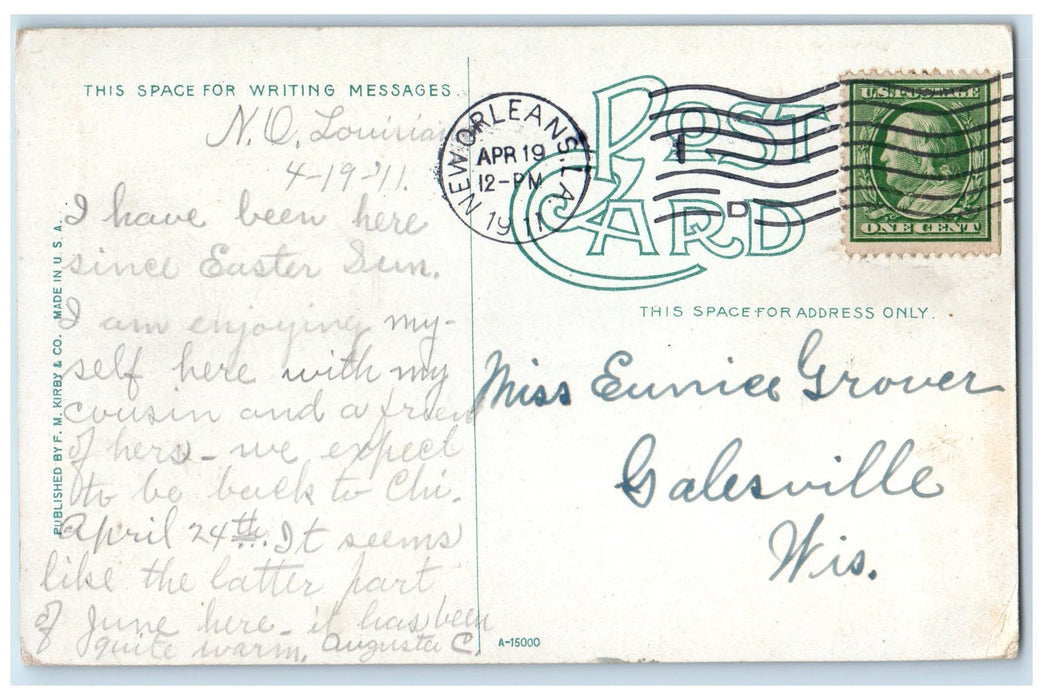 THIS SPACE FOR WRITING MESSAGES.
N.O. Louisiana
4-19-'11.
I have been here
since Easter Sun.
I am enjoying my-
self here with my
cousin and a friend
of hers - we expect
to be back to Chi.
April 24th. It seems
like the latter part
of June here - it has been
quite warm. Augusta C.
PUBLISHED BY F. M. KIRBY & CO. MADE IN U. S. A.
POST CARD
NEW ORLEANS, LA.
APR 19
12-PM
1911
D
U.S. POSTAGE
ONE CENT
THIS SPACE FOR ADDRESS ONLY.
Miss Eunice Grover
Galesville
Wis.
A-15000